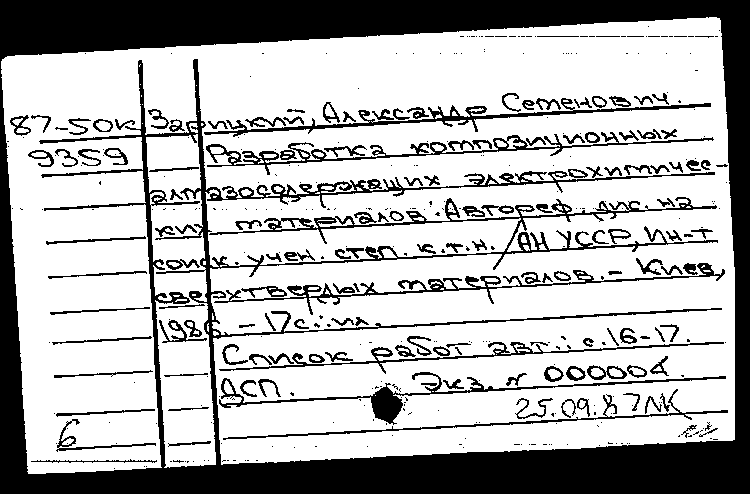 87-50к Зарицкий, Александр Семенович.
9359 Разработка композиционных
алмазосодержащих электрохимичес-
ких материалов: Автореф. дис. на
соиск. учен. степ. к.т.н. / АН УССР, Ин-т
сверхтвердых материалов. - Киев,
1986. - 17с.: ил.
Список работ авт.: с. 16-17.
ДСП. Экз. № 000004.
25.09.87
6